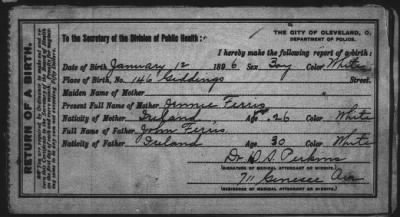 RETURN OF A BIRTH.
THE CITY OF CLEVELAND, O.
DEPARTMENT OF POLICE.
To the Secretary of the Division of Public Health:
I hereby make the following report of a birth:
Date of Birth January 12 1886 Sex Boy Color White
Place of Birth, No. 146 Giddings Street.
Maiden Name of Mother
Present Full Name of Mother Jennie Ferris
Nativity of Mother Ireland Age 26 Color White
Full Name of Father John Ferris
Nativity of Father Ireland Age 30 Color White
Dr. D. S. Perkins
(SIGNATURE OF MEDICAL ATTENDANT OR MIDWIFE.)
711 Genesee Ave
(RESIDENCE OF MEDICAL ATTENDANT OR MIDWIFE.)